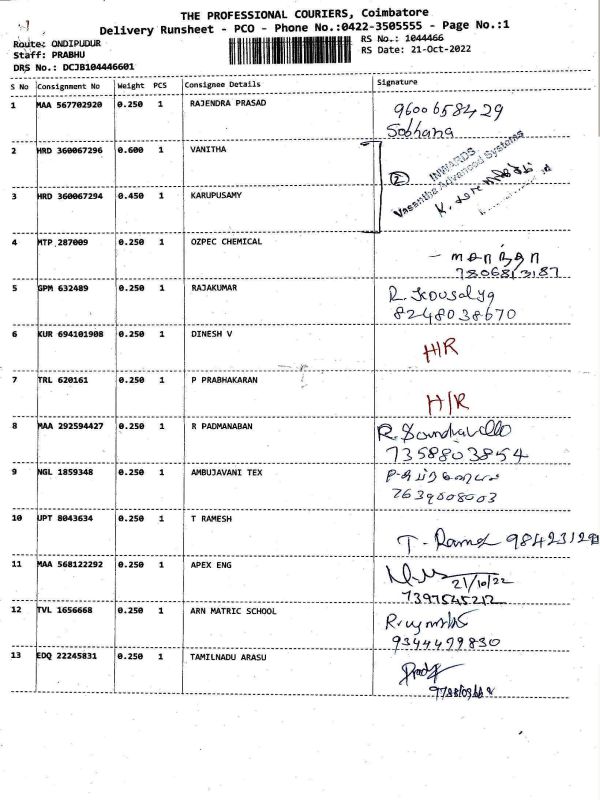 THE PROFESSIONAL COURIERS, Coimbatore
Delivery Runsheet - PCO - Phone No.:0422-3505555 - Page No.:1
Route: ONDIPUDUR
RS No.: 1044466
Staff: PRABHU
RS Date: 21-Oct-2022
DRS No.: DCJB104446601
S No Consignment No Weight PCS Consignee Details Signature
1 MAA 567702920 0.250 1 RAJENDRA PRASAD 9600658429
Sobhana
2 HRD 360067296 0.600 1 VANITHA
INWARDS
Vasantha Advanced Systems
3 HRD 360067294 0.450 1 KARUPUSAMY
4 MTP 287009 0.250 1 OZPEC CHEMICAL
7806813187
5 GPM 632489 0.250 1 RAJAKUMAR R. Kousalya
8248038670
6 KUR 694101908 0.250 1 DINESH V H/R
7 TRL 620161 0.250 1 P PRABHAKARAN H/R
8 MAA 292594427 0.250 1 R PADMANABAN
7358803854
9 NGL 1859348 0.250 1 AMBUJAVANI TEX
7639008003
10 UPT 8043634 0.250 1 T RAMESH T. Ramesh 98423129
11 MAA 568122292 0.250 1 APEX ENG
21/10/22
7397545212
12 TVL 1656668 0.250 1 ARN MATRIC SCHOOL
9344499830
13 EDQ 22245831 0.250 1 TAMILNADU ARASU